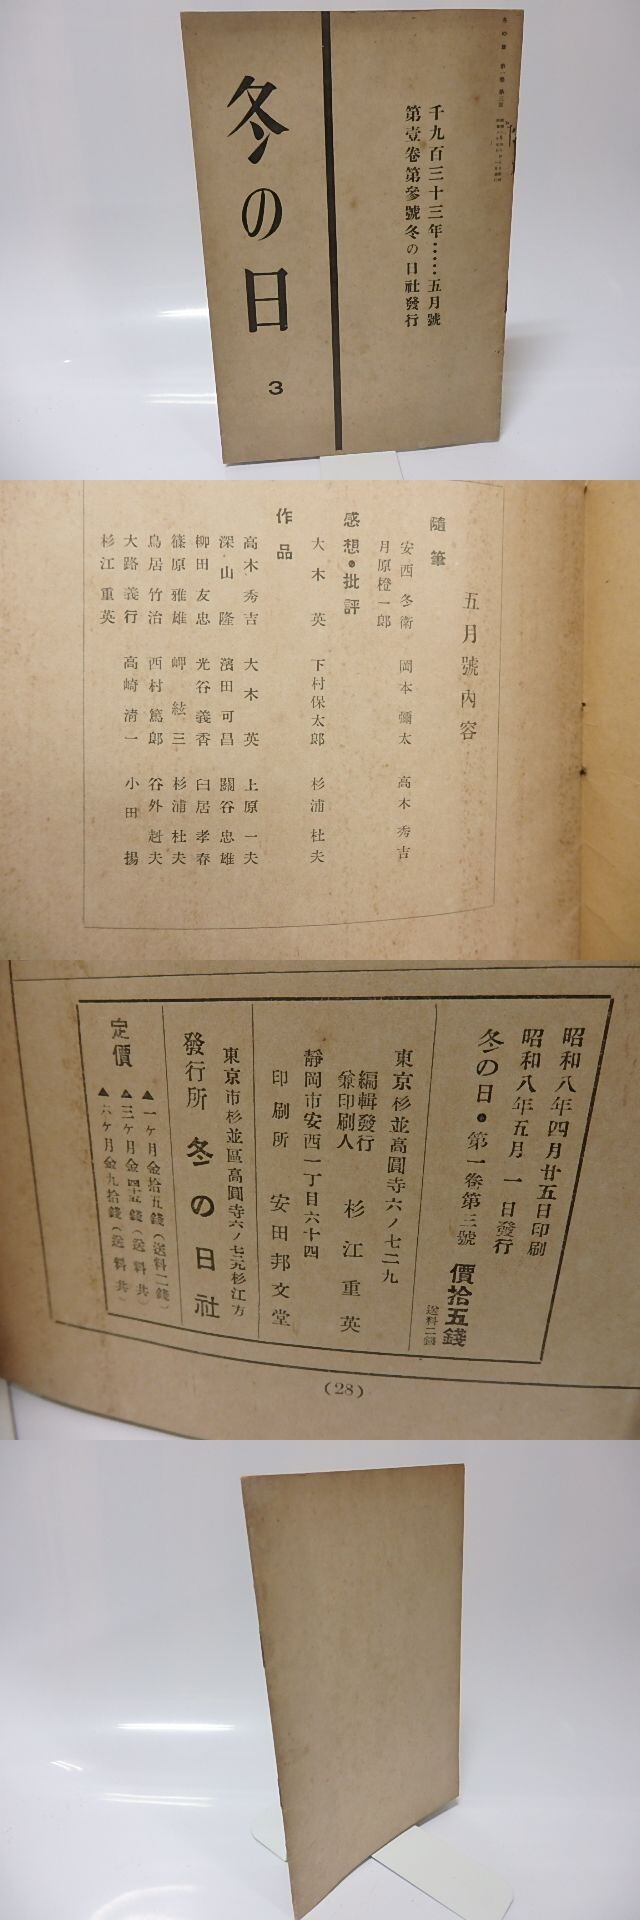 千九百三十三年……五月號
第壹卷第參號冬の日社發行
冬の日
3
五月號內容
隨筆
安西冬衛 岡本彌太 高木秀吉
月原橙一郎
感想・批評
大木英 下村保太郎 杉浦杜夫
作品
高木秀吉 大木英 上原一夫
深山隆 濱田可昌 關谷忠雄
柳田友忠 光谷義香 臼居孝春
篠原雅雄 岬絃三 杉浦杜夫
鳥居竹治 西村篤郎 谷外尅夫
大路義行 高崎清一 小田揚
杉江重英
昭和八年四月廿五日印刷
昭和八年五月一日發行
冬の日・第一卷第三號 價拾五錢
送料二錢
東京杉並高圓寺六ノ七二九
編輯發行
兼印刷人 杉江重英
靜岡市安西一丁目六十四
印刷所 安田邦文堂
東京市杉並區高圓寺六ノ七二九杉江方
發行所 冬の日社
定價
▲一ヶ月金拾五錢(送料二錢)
▲三ヶ月金四拾五錢(送料共)
▲六ヶ月金九拾錢(送料共)
(28)